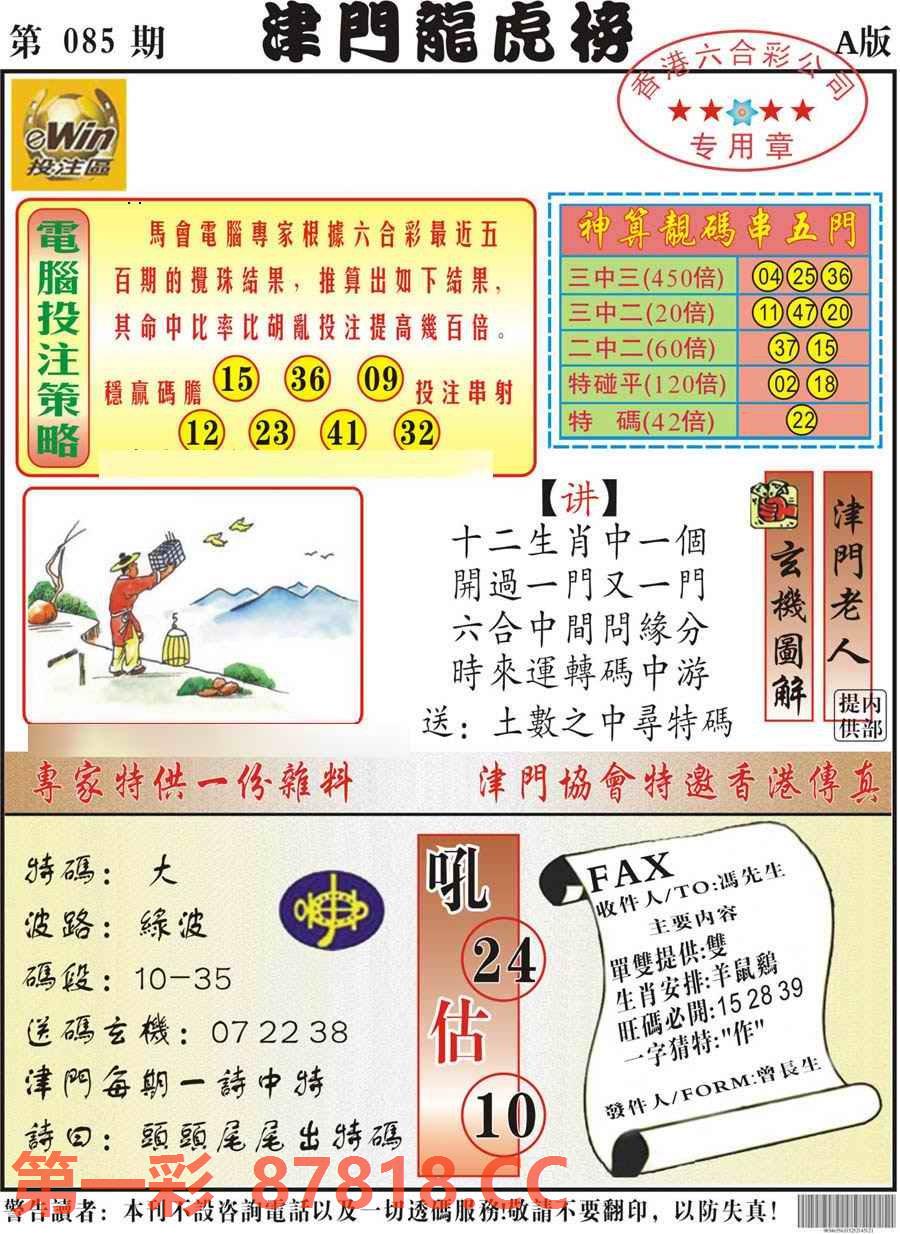 第 085 期
津門龍虎榜
A版
香港六合彩公司
专用章
eWin
投注區
電腦投注策略
馬會電腦專家根據六合彩最近五
百期的攪珠結果，推算出如下結果，
其命中比率比胡亂投注提高幾百倍。
穩贏碼膽 15 36 09 投注串射
12 23 41 32
神算靚碼串五門
三中三(450倍) 04 25 36
三中二(20倍) 11 47 20
二中二(60倍) 37 15
特碰平(120倍) 02 18
特 碼(42倍) 22
【讲】
十二生肖中一個
開過一門又一門
六合中間問緣分
時來運轉碼中游
送：土數之中尋特碼
玄機圖解
津門老人
内部提供
專家特供一份雜料
津門協會特邀香港傳真
特碼：大
波路：綠波
碼段：10-35
送碼玄機：07 22 38
津門每期一詩中特
詩曰：頭頭尾尾出特碼
吼
24
估
10
FAX
收件人/TO:馮先生
主要内容
單雙提供:雙
生肖安排:羊鼠鷄
旺碼必開:15 28 39
一字猜特:"作"
發件人/FORM:曾長生
第一彩 87818.CC
警告讀者：本刊不設咨詢電話以及一切透碼服務!敬請不要翻印，以防失真!